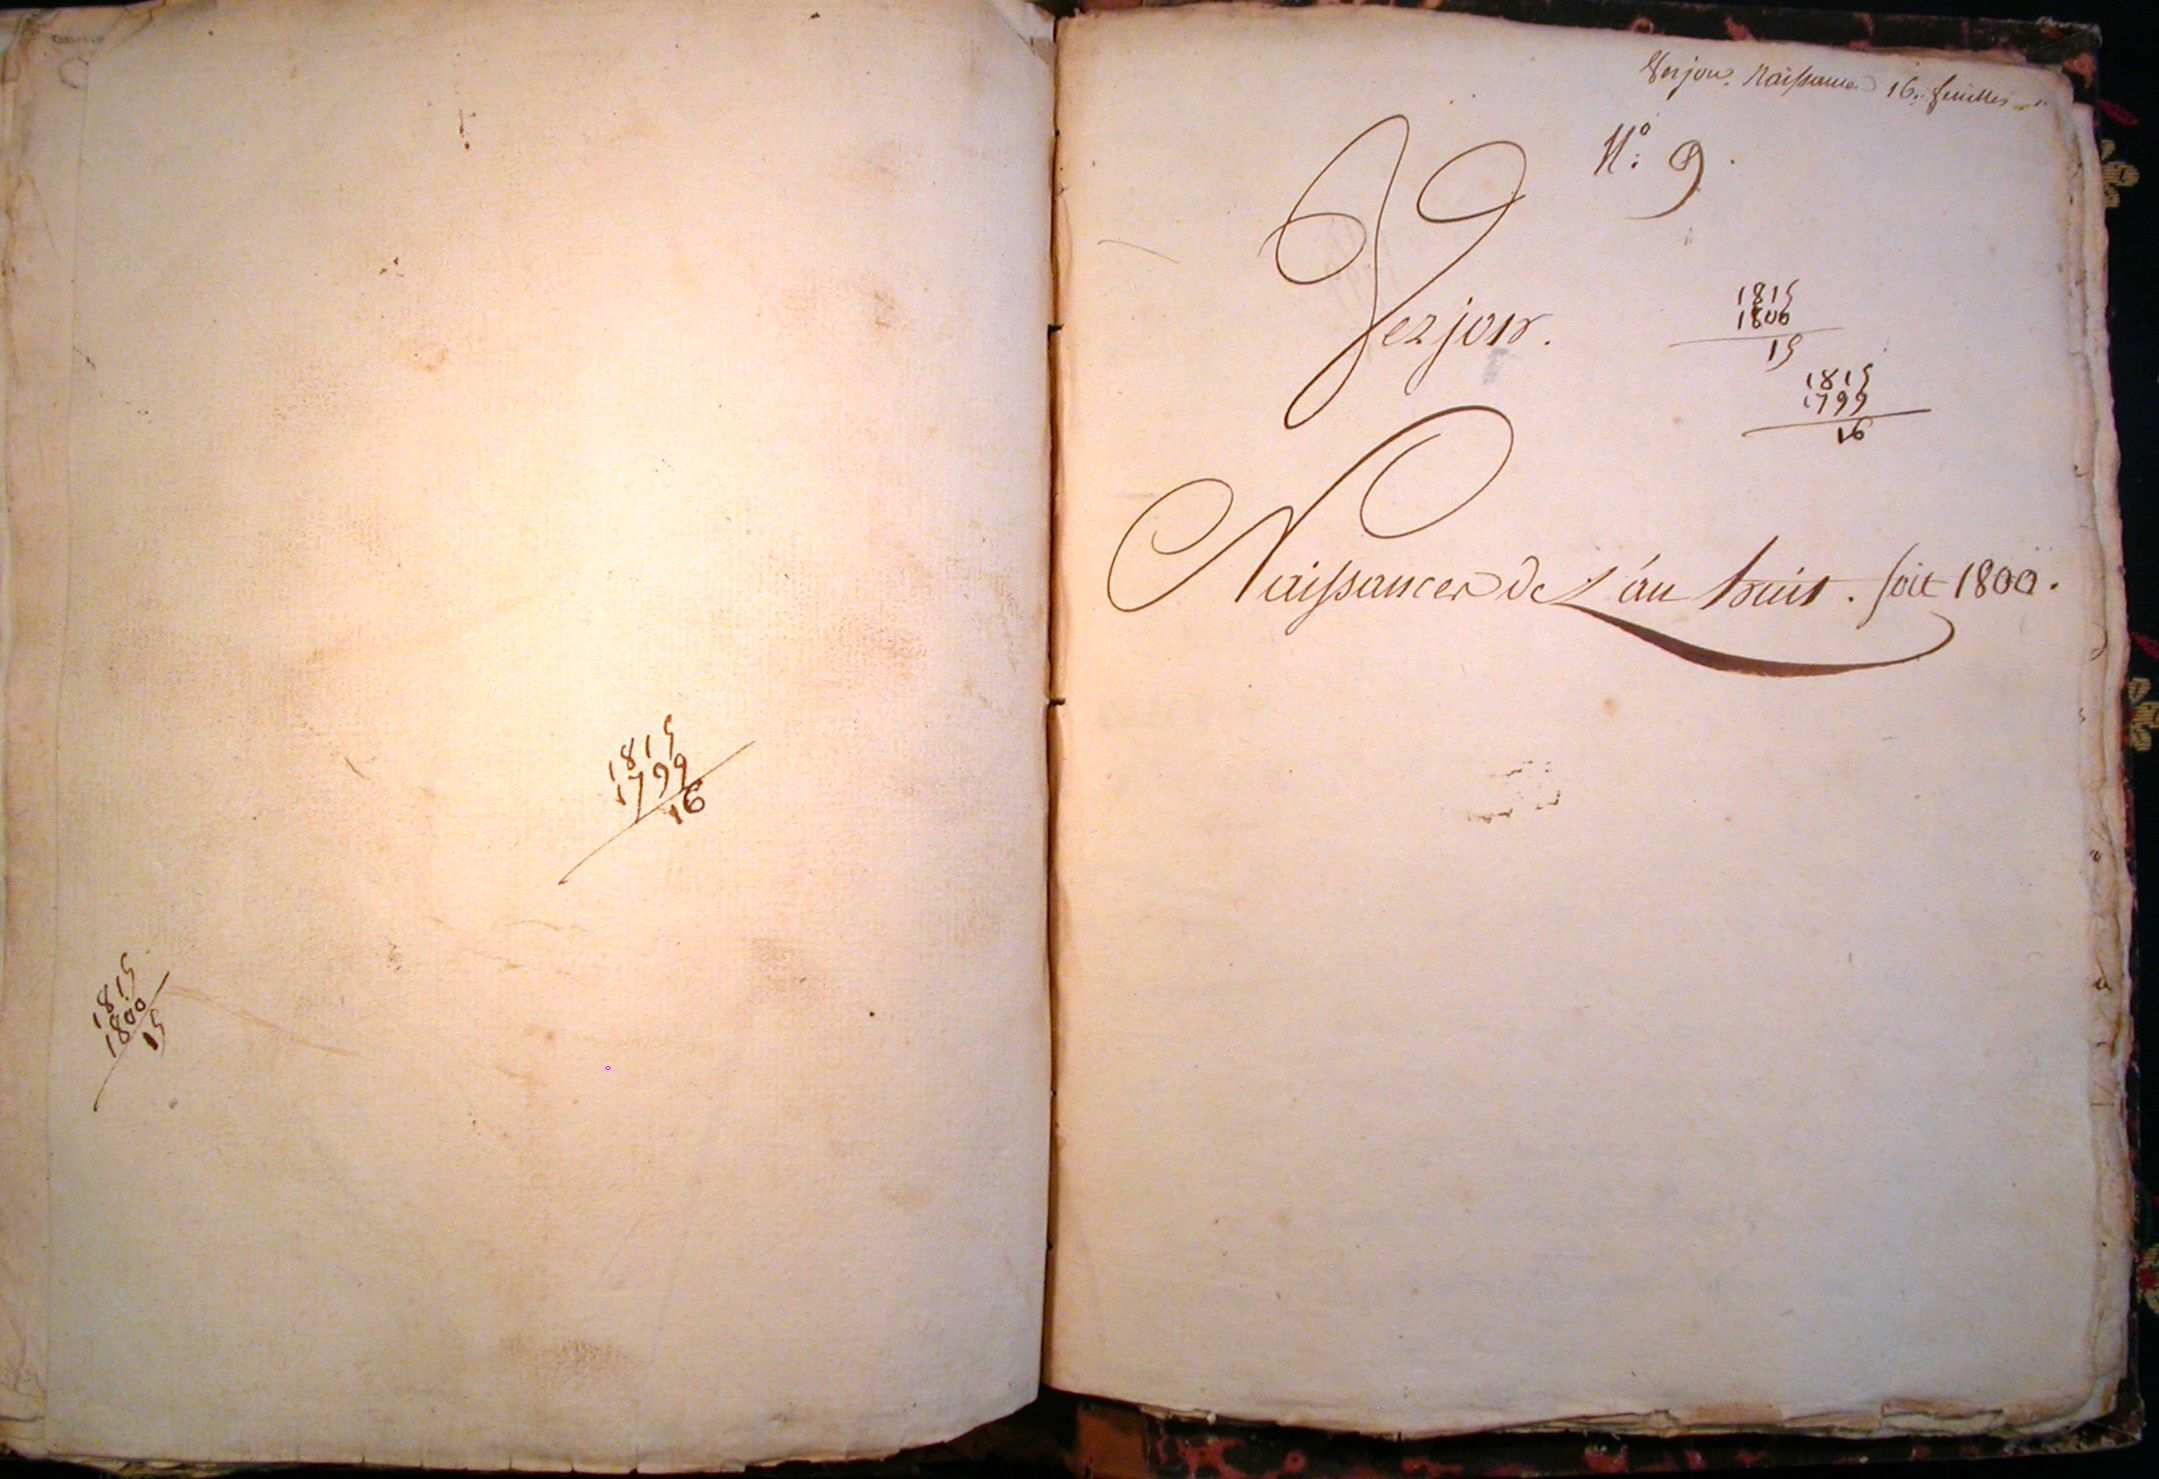 1815
1799
16
1815
1800
15
Verjon. Naissances 16. feuilles
N.º 9.
Verjon.
1815
1800
15
1815
1799
16
Naissances de L'an huit. soit 1800.